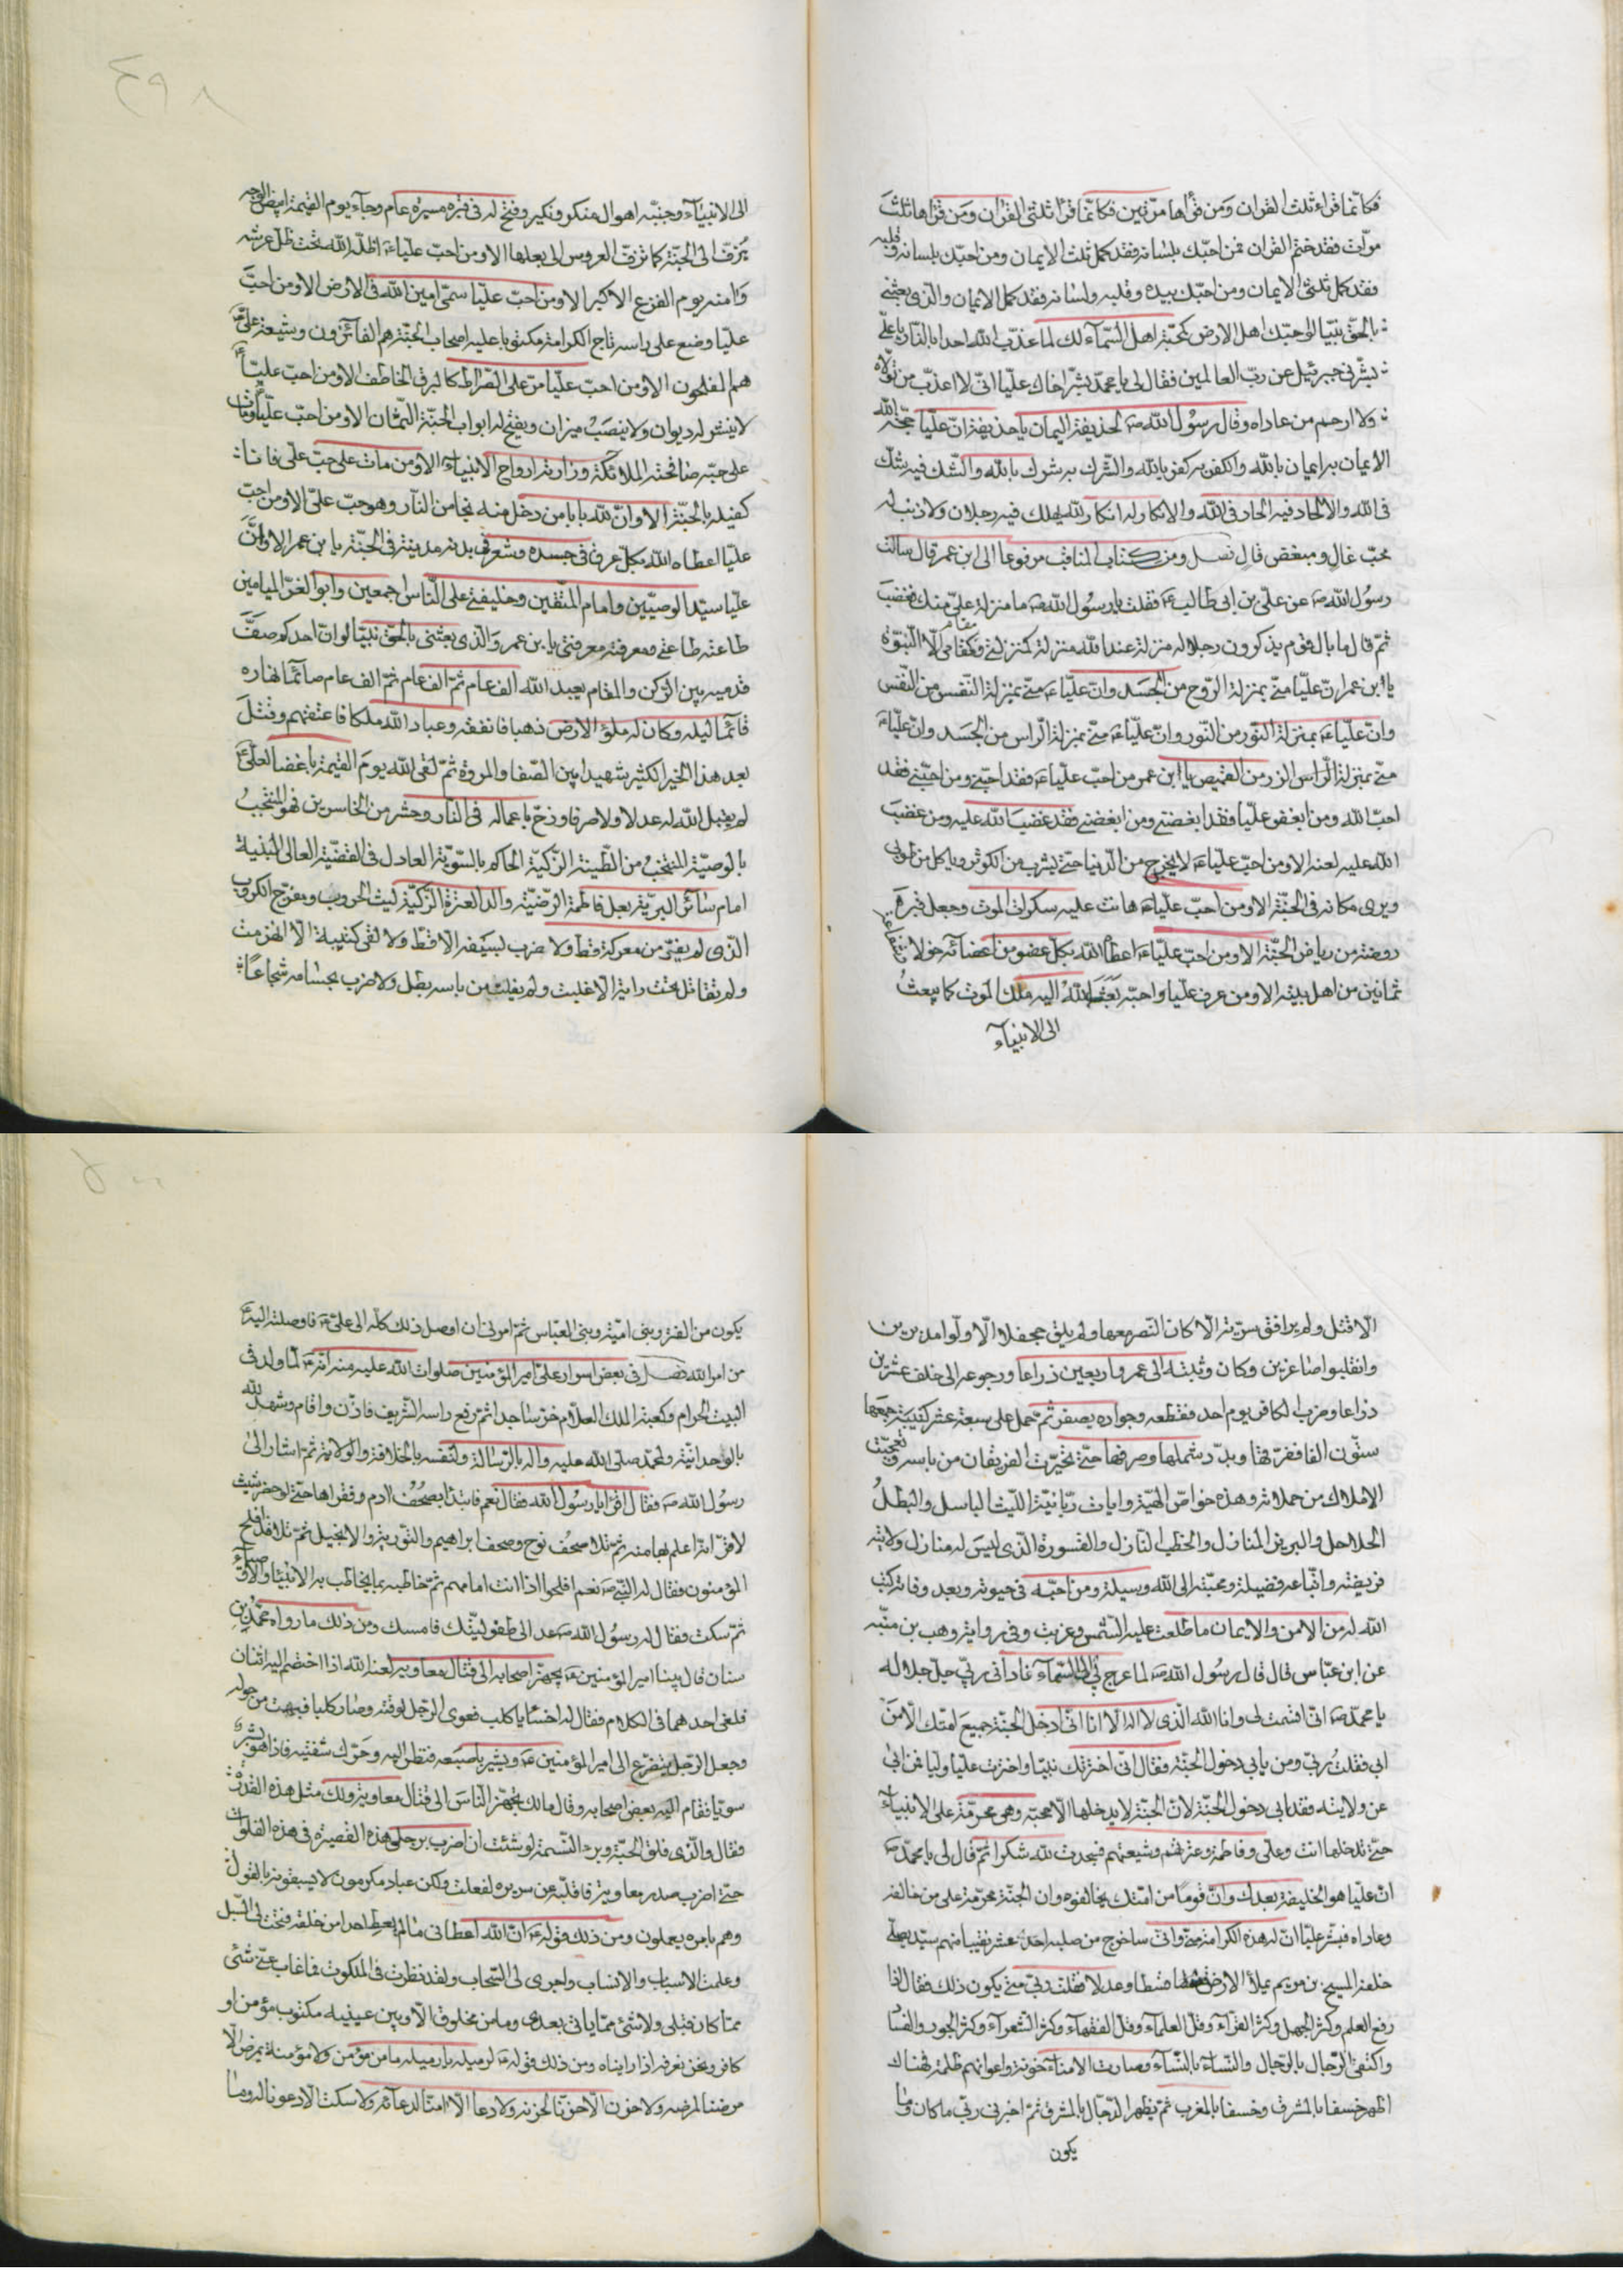 فكانّما قراء ثلث القران ومن قراها مرّتين فكانّما قرا ثلثى القران ومن قراها ثلث
مرّات فقد ختم القران فمن احبّك بلسانه فقد كمل ثلث الايمان ومن احبّك بلسانه وقلبه
فقد كمل ثلثى الايمان ومن احبّك بيده وقلبه ولسانه فقد كمل الايمان والّذى بعثنى
بالحقّ نبيّا لو احبّك اهل الارض كمحبّة اهل السّمآء لك لما عذّب الله احدا بالنّار يا علىّ
بشّرنى جبرئيل عن ربّ العالمين فقال لى يا محمّد بشّر اخاك عليّا انّى لا اعذّب من تولّاه
ولا ارحم من عاداه وقال رسول الله ص لحذيفة اليمان يا حذيفة انّ عليّا حجّة الله
الايمان به ايمان بالله والكفر به كفر بالله والشّرك به شرك بالله والشّك فيه شك
فى الله والالحاد فيه الحاد فى الله والانكار له انكار لله يهلك فيه رجلان ولا ذنب له
محبّ غال ومبغض قال فصل ومن كتاب المناقب مرفوعا الى ابن عمر قال سالت
رسول الله ص عن علىّ بن ابى طالب ع فقلت يا رسول الله ص ما منزلة علىّ منك فغضب
ثمّ قال ما بال قوم يذكرون رجلا له منزلة عند الله منزلة كمنزلتى ومقام كمقامى الّا النبّوة
يا ابن عمر انّ عليّا منّى بمنزلة الرّوح من الجسد وانّ عليّا ع منّى بمنزلة النّفس من النّفس
وانّ عليّا ع بمنزلة النّور من النّور وانّ عليّا ع منّى بمنزلة الرّاس من الجسد وانّ عليّا ع
منّى بمنزلة الزر من القميص يا ابن عمر من احبّ عليّا ع فقد احبّنى ومن احبّنى فقد
احبّ الله ومن ابغض عليّا فقد ابغضنى ومن ابغضنى فقد غضب الله عليه ومن غضب
الله عليه لعنه الا ومن احبّ عليّا ع لا يخرج من الدّنيا حتّى يشرب من الكوثر وياكل من طوبى
ويرى مكانه فى الجنّة الا ومن احبّ عليّا ع هانت عليه سكرات الموت وجعل قبره
روضة من رياض الجنّة الا ومن احبّ عليّا ع اعطاه الله بكلّ عضو من اعضائه حولا
ثمانين من اهل بيته الا ومن عرف عليّا واحبّه بعث الله اليه ملك الموت كما يبعث
الى الانبيآء
الى الانبيآء وجنّبه اهوال منكر ونكير وفتح له فى قبره مسيرة عام وجآء يوم القيمة ابيض الوجه
يزفّ الى الجنّة كما تزفّ العروس الى بعلها الا ومن احبّ عليّا ع اظلّه الله تحت ظلّ عرشه
وامنه يوم الفزع الاكبر الا ومن احبّ عليّا سمّى امين الله فى الارض الا ومن احبّ
عليّا وضع على راسه تاج الكرامة مكتوبا عليه اصحاب الجنّة هم الفآئزون وشيعة علىّ ع
هم المفلحون الا ومن احبّ عليّا مرّ على الصّراط كالبرق الخاطف الا ومن احبّ عليّا
لا ينشر له ديوان ولا ينصب ميزان ويفتح له ابواب الجنّة الثّمان الا ومن احبّ عليّا ومات
على حبّه صافحته الملآئكة وزارته ارواح الانبيآء الا ومن مات على حبّ علىّ فانا
كفيله بالجنّة الا وانّ لله بابا من دخل منه نجا من النّار وهو حبّ علىّ الا ومن احبّ
عليّا اعطاه الله بكلّ عرق فى جسده وشعر فى بدنه مدينة فى الجنّة يا بن عمر الا وانّ
عليّا سيّد الوصيّين وامام المتّقين وخليفتى على النّاس اجمعين وابو الغرّ الميامين
طاعته طاعتى ومعرفته معرفتى يا بن عمر والّذى بعثنى بالحقّ نبيّا لو انّ احدكم صفّ
قدميه بين الرّكن والمقام يعبد الله الف عام ثمّ الف عام ثمّ الف عام صائما نهاره
قآئما ليله وكان له ملؤ الارض ذهبا فانفقه وعباد الله ملكا فاعتقهم وقتل
بعد هذا الخير الكثير شهيدا بين الصّفا والمروة ثمّ لقى الله يوم القيمة باغضا لعلىّ ع
لم يقبل الله له عدلا ولا صرفا وزخّ باعماله فى النّار وحشر من الخاسرين فهو المنتخب
بالوصيّة المنتخب من الطّينة الزّكيّة الحاكم بالسّويّة العادل فى القضيّة العالى البنية
امام سآئر البريّة بعل فاطمة الرّضيّة والد العترة الزّكيّة ليث الحروب ومفرّج الكروب
الّذى لم يفرّ من معركة قطّ ولا ضرب بسيفه الا قطّ ولا لقى كتيبة الّا انهزمت
ولم يقاتل تحت راية الا غلبت ولم يفلت من باسه بطل ولا ضرب بحسامه شجاعا
الّا قتل ولم يرافق سريّة الّا كان النّصر معها ولم يلق جحفلا الّا ولّوا مدبرين
وانقلبوا صاغرين وكان وثبته الى عمرو اربعين ذراعا ورجوعه الى خلف عشرين
ذراعا وضرب الكافر يوم احد فقطعه وجواده نصفين ثمّ حمل على سبعة عشر كتيبة جمعها
ستّون الفا ففرّقها وبدّد شملها ومزقها حتّى تحيّرت الفريقان من باسه وتعجّبت
الاملاك من حملاته وهذه خواصّ الهيّة وايات ربّانيّة اللّيث الباسل والبطل
الحلاحل والهزبر المنازل والخطب النّازل والقسورة الّذى ليس له منازل ولايته
فريضة واتّباعه فضيلة ومحبّته الى الله وسيلة ومن احبّه فى حيوته وبعد وفاته كتب
الله له من الامن والايمان ما طلعت عليه الشّمس وغربت وفى رواية وهب بن منبّه
عن ابن عبّاس قال قال رسول الله ص لما عرج بى الى السّمآء نادانى ربّى جلّ جلاله
يا محمّد ص انّى اقسمت بى وانا الله الّذى لا اله الا انا انّى ادخل الجنّة جميع امّتك الّا من
ابى فقلت ربّى ومن يابى دخول الجنّة فقال انّى اخترتك نبيّا واخترت عليّا وليّا فمن ابى
عن ولايته فقد ابى دخول الجنّة لانّ الجنّة لا يدخلها الّا محبّه وهى محرّمة على الانبيآء
حتّى تدخلها انت وعلى وفاطمة وعترتهم وشيعتهم فسجدت لله شكرا ثمّ قال لى يا محمّد ص
انّ عليّا هو الخليفة بعدك وانّ قوما من امّتك يخالفوه وان الجنّة محرّمة على من خالفه
وعاداه فبشّر عليّا انّ له هذه الكرامة منّى وانّى ساخرج من صلبه احد عشر نقيبا منهم سيّد يصلّى
خلفه المسيح بن مريم يملا الارض قسطا وعدلا فقلت ربّى متى يكون ذلك فقال اذا
رفع العلم وكثر الجهل وكثر القرّآء وقلّ العلمآء وقلّ الفقهآء وكثر الشّعرآء وكثر الجور والفساد
واكتفى الرّجال بالرّجال والنّسآء بالنّسآء وصارت الامنآء خونة واعوانهم ظلمة فهناك
اظهر خسفا بالمشرق وخسفا بالمغرب ثمّ يظهر الدّجال بالمشرق ثمّ اخبرنى ربّى ما كان وما
يكون
يكون من الفتن وبنى اميّة وبنى العبّاس ثمّ امرنى ان اوصل ذلك كلّه الى علىّ ع فاوصلته اليه ع
من امر الله فصل فى بعض اسرار على امير المؤمنين صلوات الله عليه منه انّه ع لمّا ولد فى
البيت الحرام وكعبة الملك العلّام خرّ ساجدا ثمّ رفع راسه الشّريف فاذّن واقام وشهد لله
بالوحدانيّة ولمحمّد صلّى الله عليه واله بالرّسالة ولنفسه بالخلافة والولاية ثمّ اشار الى
رسول الله ص فقال اقرا يا رسول الله فقال نعم فابتدا بصحف ادم وفقراها حتّى لو حضر شيث
لاقرّ انّه اعلم بها منه ثمّ تلا صحف نوح وصحف ابراهيم والتّورية والانجيل ثمّ تلا قد افلح
المؤمنون فقال له النّبى ص نعم افلحوا اذ انت امامهم ثمّ خاطبه بما يخاطب به الانبيآء والاوصيآء
ثمّ سكت فقال له رسول الله ص عد الى طفوليّتك فامسك ومن ذلك ما رواه محمّد بن
سنان قال بينا امير المؤمنين ع يجهّز اصحابه الى قتال معاوية لعنه الله اذا اختصم اليه اثنان
فلغى احدهما فى الكلام فقال له اخسا يا كلب فعوى الرّجل لوقته وصار كلبا فبهت من حوله
وجعل الرّجل يتضرّع الى امير المؤمنين ع ويشير باصبعه فنظر اليه وحرّك شفتيه فاذا هو بشر
سويّا فقام اليه بعض اصحابه وقال مالك تجهّز النّاس الى قتال معاوية ولك مثل هذه القدرة
فقال والّذى فلق الحبّة وبرء النّسمة لو شئت ان اضرب برجلى هذه القصيرة فى هذه الفلوات
حتّى اضرب صدر معاوية فاقلبه عن سريره لفعلت ولكن عباد مكرمون لا يسبقونه بالقول
وهم بامره يعملون ومن ذلك قوله ع انّ الله اعطانى ما لم يعط احدا من خلقه فتحت لى السّبل
وعلمت الاسباب والانساب واجرى لى السّحاب ولقد نظرت فى الملكوت فما غاب عنّى شئ
ممّا كان قبلى ولا شئ ممّا ياتى بعدى وما من مخلوق الّا وبين عينيه مكتوب مؤمن او
كافر ونحن نعرفه اذا رايناه ومن ذلك قوله ع لرميله يا رميله ما من مؤمن ولا مؤمنة يمرض الّا
مرضنا لمرضه ولا حزن الّا حزنّا لحزنه ولا دعا الّا امنّا لدعآئه ولا سكت الّا دعونا له وما